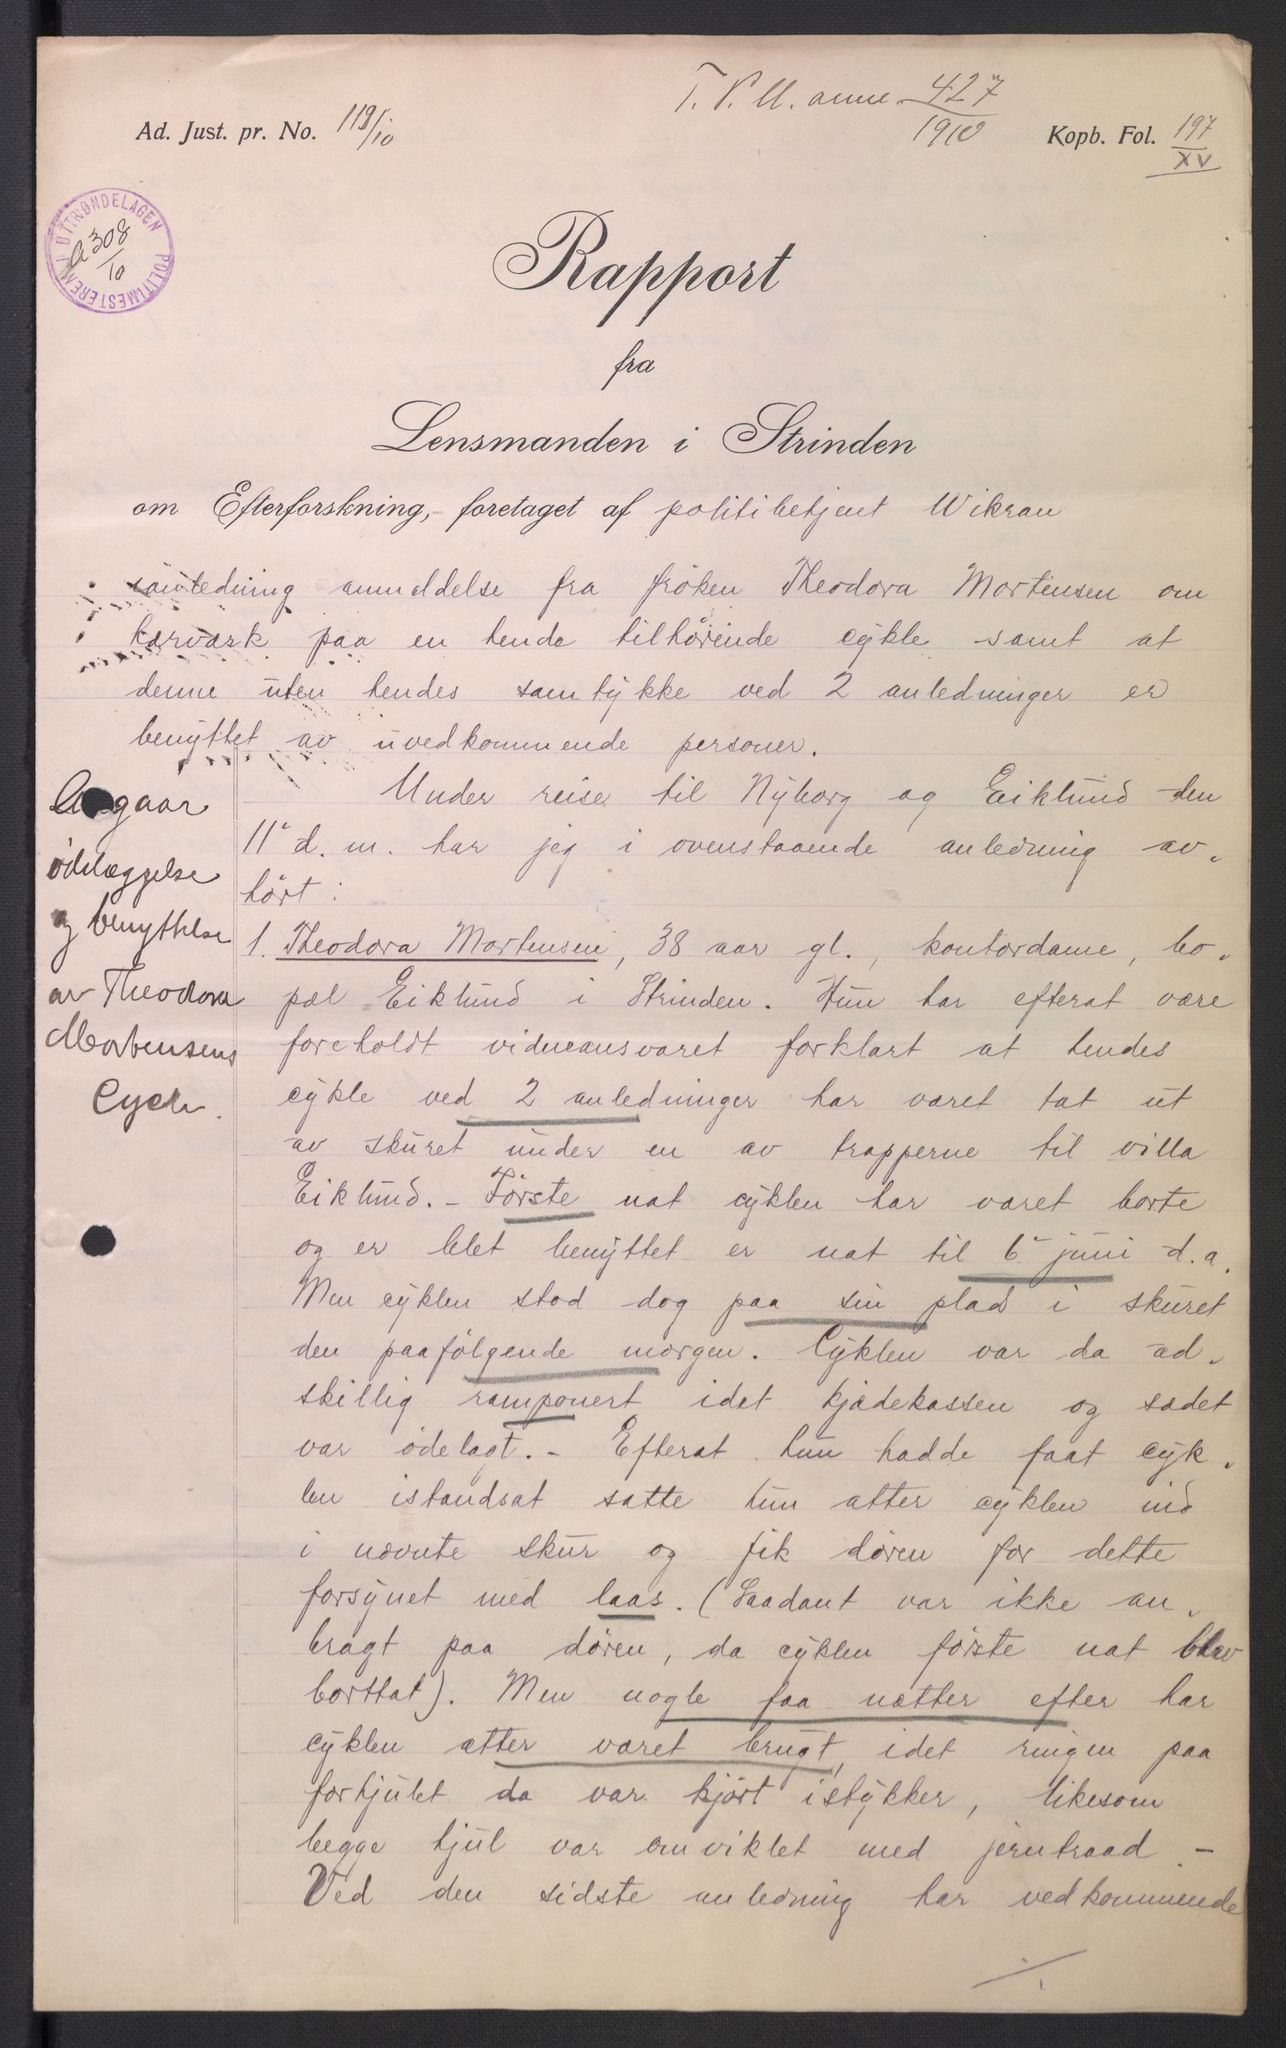 T. P. U. anm 427
1910
Ad. Just. pr. No. 119/10
Kopb. Fol. 197
XV
POLITIMESTEREN I UTTRØNDELAGEN
A 308
10
Rapport
fra
Lensmanden i Strinden
om Efterforskning, foretaget af politibetjent Wikran
i anledning anmeldelse fra frøken Theodora Mortensen om
hærværk paa en hende tilhørende cykle samt at
denne uten hendes samtykke ved 2 anledninger er
benyttet av uvedkommende personer.
Angaar
ødelæggelse
og benyttelse
av Theodora
Mortensens
Cycle.
Under reise til Nyborg og Eiklund den
11' d. m. har jeg i ovenstaaende anledning av-
hørt:
1. Theodora Mortensen, 38 aar gl., kontordame, bo-
pæl Eiklund i Strinden. Hun har efterat være
foreholdt vidneansvaret forklart at hendes
cykle ved 2 anledninger har været tat ut
av skuret under en av trapperne til villa
Eiklund. - Første nat cyklen har været borte
og er blet benyttet er nat til 6' juni d.a.
Men cyklen stod dog paa sin plads i skuret
den paafølgende morgen. Cyklen var da ad-
skillig ramponert idet kjædekassen og sædet
var ødelagt. - Efterat hun hadde faat cyk-
len istandsat satte hun atter cyklen ind
i nævnte skur og fik døren for dette
forsynet med laas. (Saadant var ikke an-
bragt paa døren, da cyklen første nat blev
borttat). Men nogle faa nætter efter har
cyklen atter været brugt, idet ringen paa
forhjulet da var kjørt istykker, likesom
begge hjul var omviklet med jerntraad -
Ved den sidste anledning har vedkommende
./.